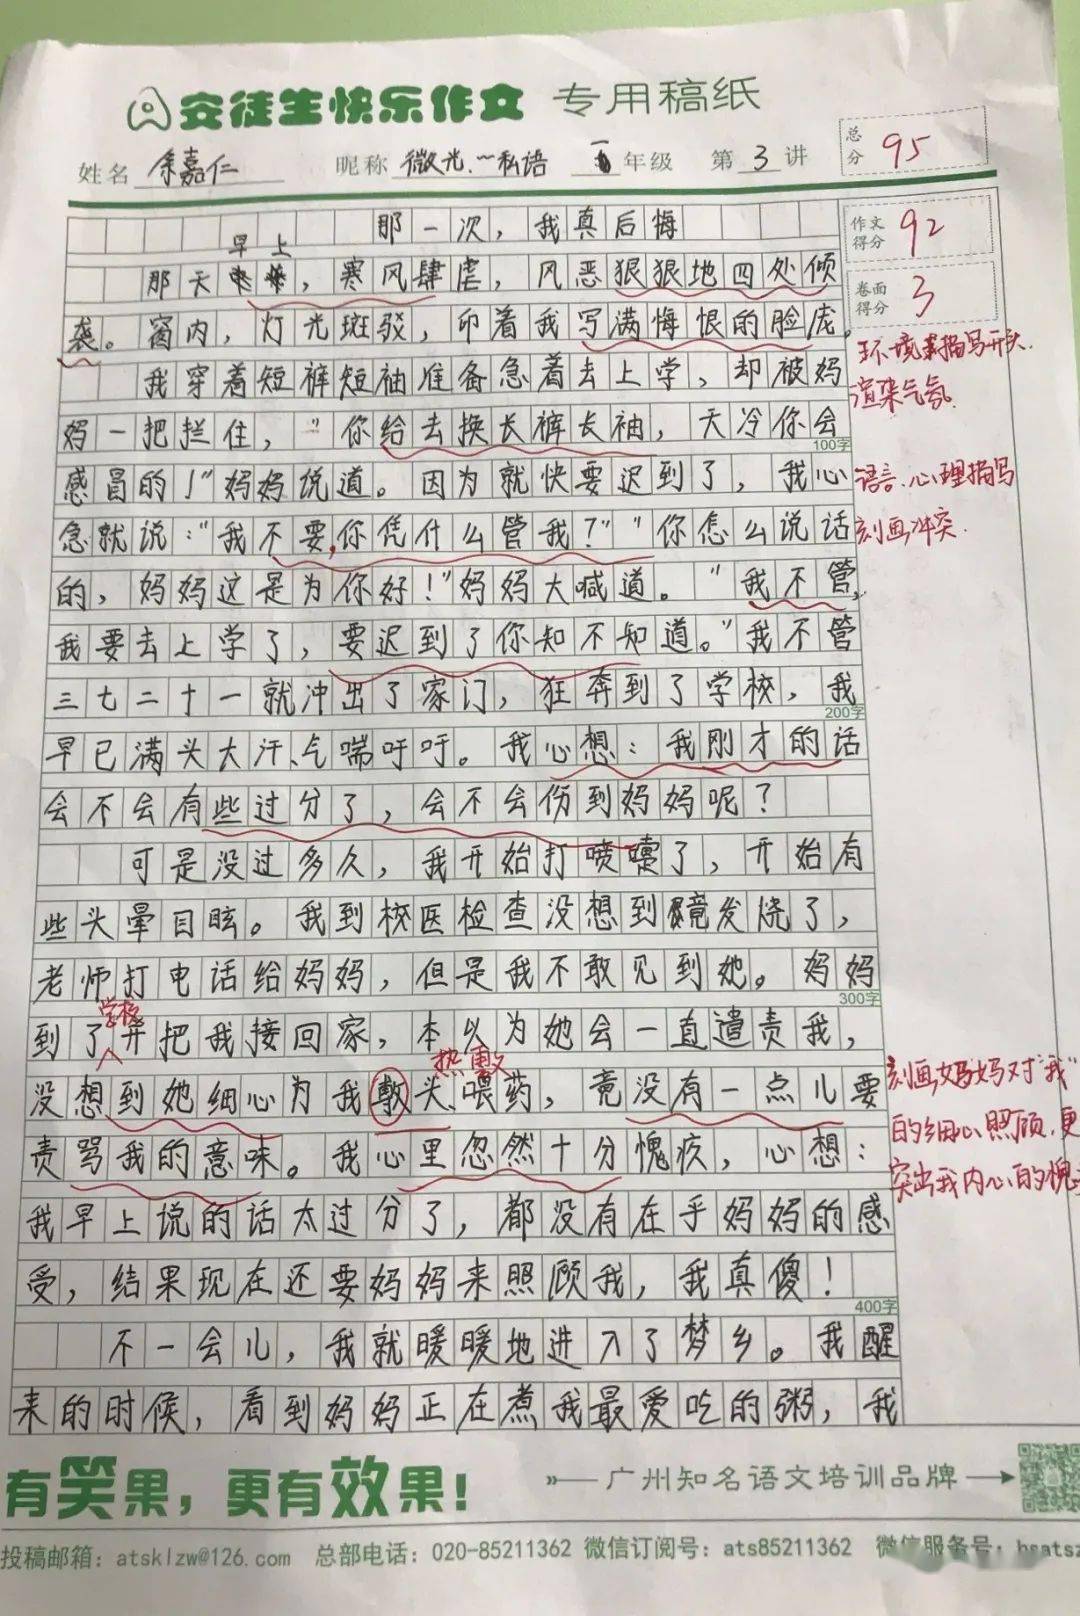 安徒生快乐作文 专用稿纸
姓名 余嘉仁 昵称 微光~私语 年级 第 3 讲
总分 95
作文得分 92
卷面得分 3
那一次，我真后悔
早上
那天，寒风肆虐，风恶狠狠地四处倾
袭。窗内，灯光斑驳，印着我写满悔恨的脸庞。
环境描写开头，
渲染气氛.
我穿着短裤短袖准备急着去上学，却被妈
妈一把拦住，“你给去换长裤长袖，天冷你会
100字
感冒的！”妈妈说道。因为就快要迟到了，我心
急就说：“我不要，你凭什么管我？”“你怎么说话
语言、心理描写
刻画冲突.
的，妈妈这是为你好！”妈妈大喊道。“我不管，
我要去上学了，要迟到了你知不知道。”我不管
三七二十一就冲出了家门，狂奔到了学校，我
200字
早已满头大汗、气喘吁吁。我心想：我刚才的话
会不会有些过分了，会不会伤到妈妈呢？
可是没过多久，我开始打喷嚏了，开始有
些头晕目眩。我到校医检查没想到竟发烧了，
老师打电话给妈妈，但是我不敢见到她。妈妈
300字
学校
到了并把我接回家，本以为她会一直谴责我，
热敷
没想到她细心为我敷头、喂药，竟没有一点儿要
责骂我的意味。我心里忽然十分愧疚，心想：
刻画妈妈对“我”
的细心照顾，更
突出我内心的愧
我早上说的话太过分了，都没有在乎妈妈的感
受，结果现在还要妈妈来照顾我，我真傻！
400字
不一会儿，我就暖暖地进入了梦乡。我醒
来的时候，看到妈妈正在煮我最爱吃的粥，我
有笑果，更有效果！
广州知名语文培训品牌
投稿邮箱：atsklzw@126.com 总部电话：020-85211362 微信订阅号：ats85211362 微信服务号：hsatsz